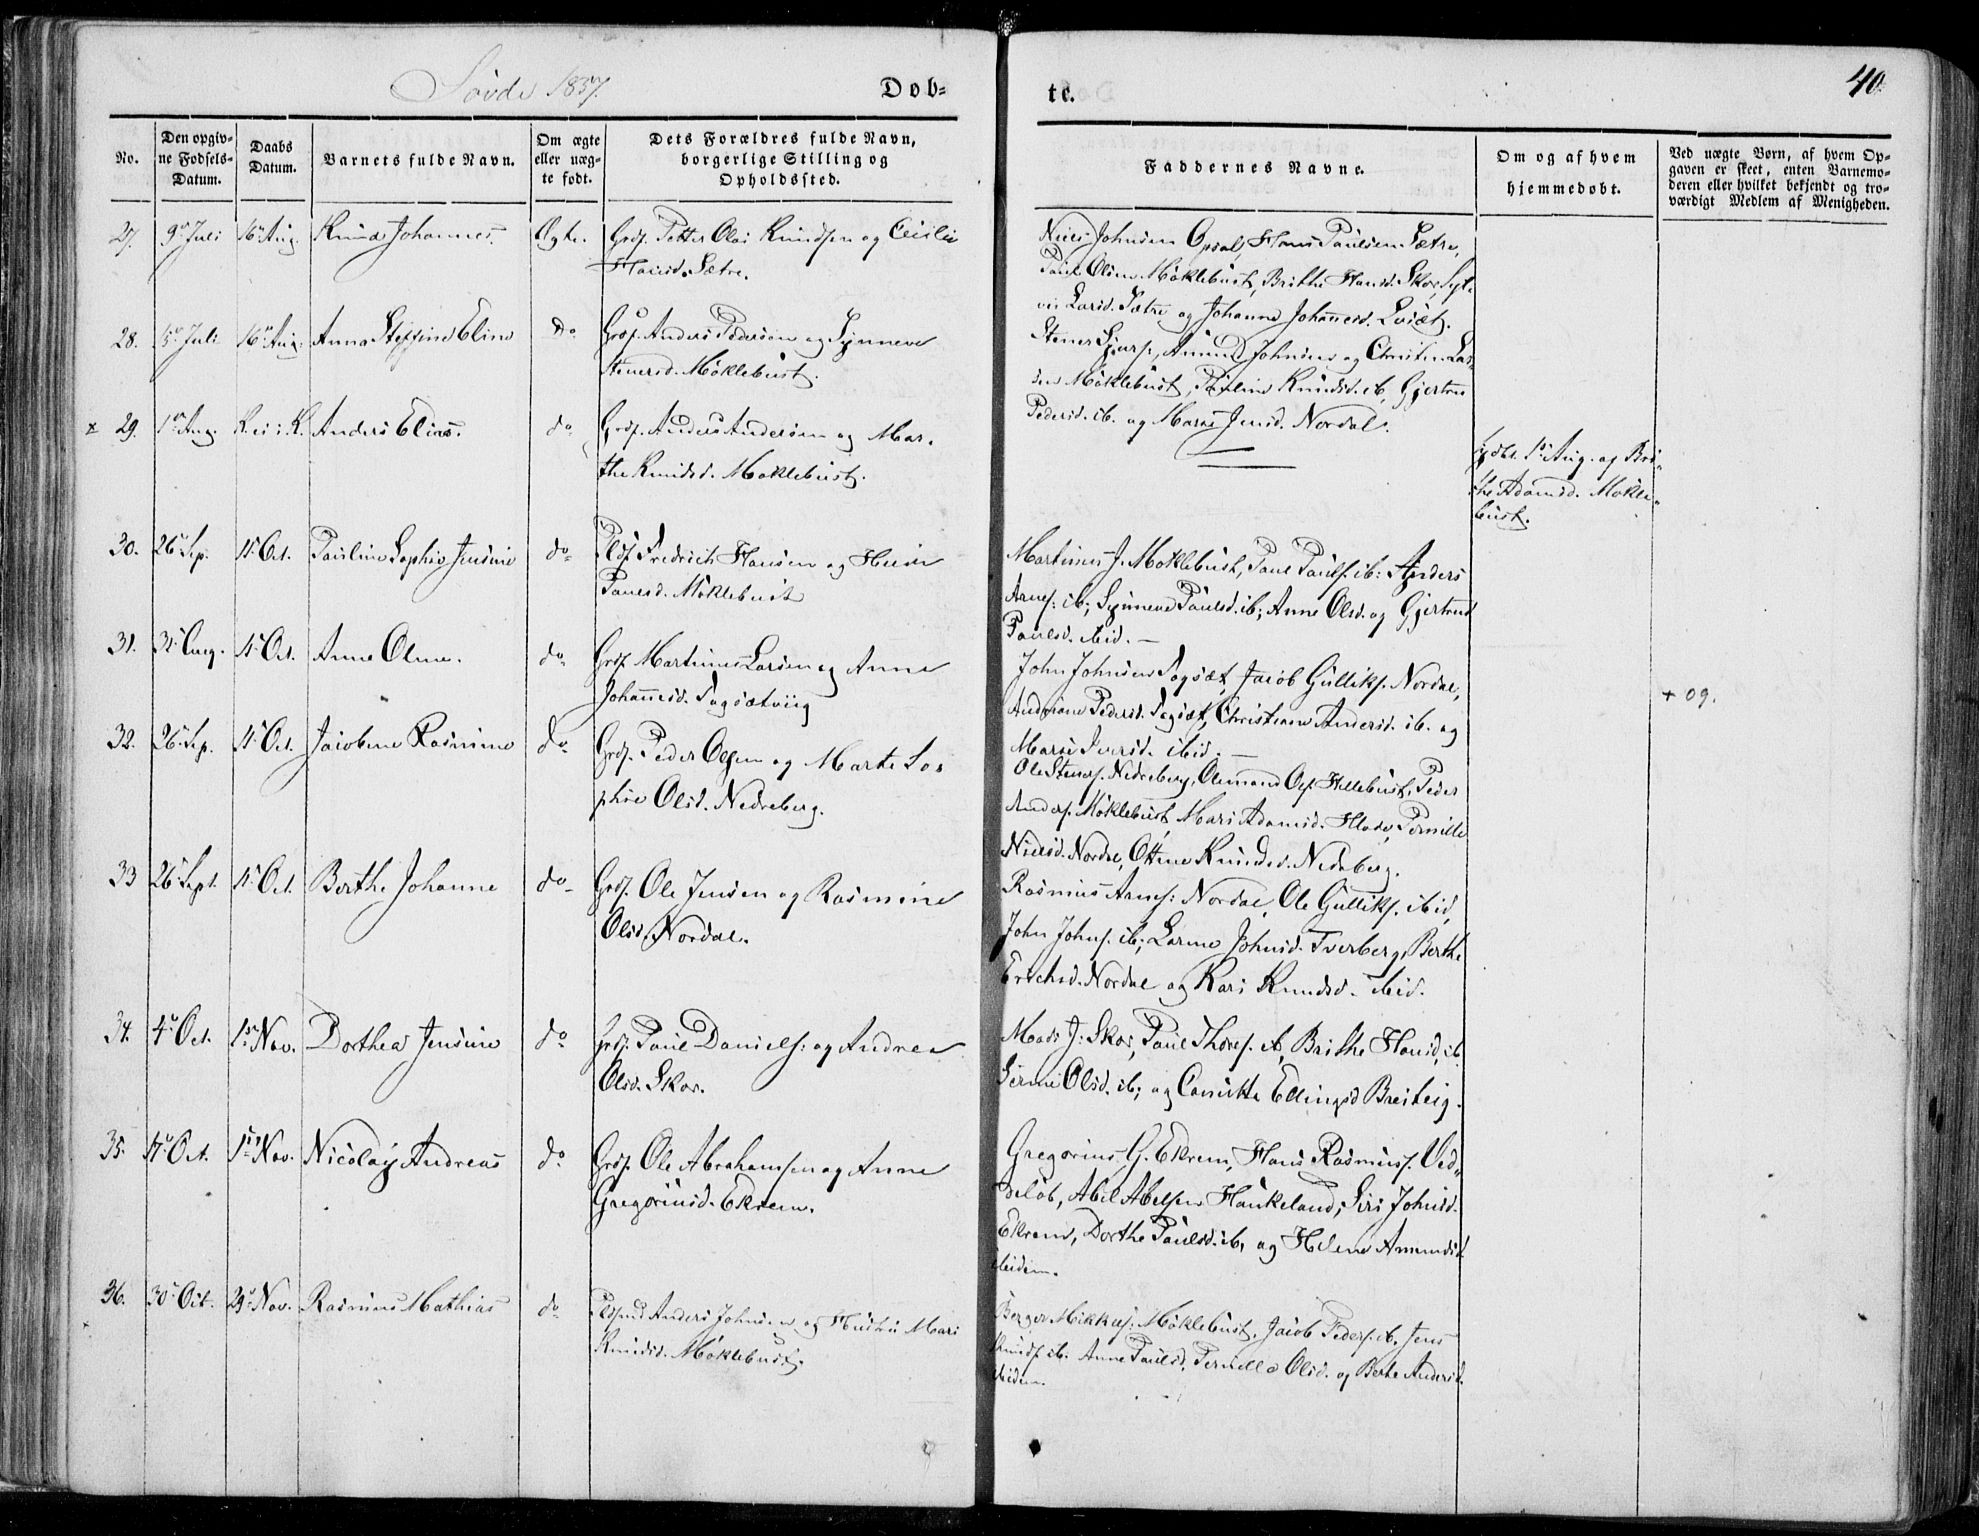 Søvde 1857.
Døb=
te.
40.
No.
Den opgiv=
ne Fødsels=
Datum.
Daabs
Datum.
Barnets fulde Navn.
Om ægte
eller uæg=
te født.
Dets Forældres fulde Navn,
borgerlige Stilling og
Opholdssted.
Faddernes Navne.
Om og af hvem
hjemmedøbt.
Ved uægte Børn, af hvem Op=
gaven er skeet, enten Barnemo=
deren eller hvilket bekjendt og tro=
værdigt Medlem af Menigheden.
27. 9de Juli 16de Aug. Knud Johannes. Ægte. Grdf. Petter Olai Knudsen og Cecilie
Hansd. Sætre.
Niels Johnsen Opsal, Hans Paulsen Sætre,
Paul Olsen Møklebust, Brithe Hansd. Skor, Syl=
via Larsd. Sætre og Johanne Johannesd.
28. Juli 16de Aug. Anna Steffine Eline do Grdf. Anders Pedersen og Synneve
Stenersd. Møklebust.
Stener Amund Johnsen og Christen Lar=
sen Møklebust, Knudsd. ib, Gjertrud
Pedersd. ib. og Marie Jensd. Nordal.
x 29. 1ste Aug. K. Anders Elias. do Grdf. Anders Andersen og Mar=
the Knudsd. Møklebust.
hjdbt. 1ste Aug. af Bri=
the Adamsd. Møkle=
bust.
30. 26de Sep. 11te Oct. Pauline Sophie Jensine do Fredrich Hansen og
Paulsd. Møklebust
Martinus J. Møklebust, Paul Pauls. ib: Anders
Arnes. ib; Synneve Paulsd. ib; Anne Olsd. og Gjertrud
Paulsd. ibid. —
31. 31te Aug. 11te Oct. Anne Oline. do Grdf. Martinus Larsen og Anne
Johannesd. Sagsætviig
John Johnsen Sagsæt, Jacob Gulliks. Nordal,
Andriane Pedersd. Sagsæt, Christiane Andersd. ib. og
Marie Iversd. ibid. —
+ 09.
32. 26de Sep. 11te Oct. Jacobine Rasmine do Grdf. Peder Olsen og Marte So=
phie Olsd. Nedreberg.
Ole Steners. Nedreberg, Olemand Ols. Hellebust, Peder
Anders. Møklebust, Mari Adamsd. Pernille
Nielsd. Nordal, Ottine Knudsd. Nedreberg.
33 26de Sept. 11te Oct. Berthe Johanne do Grdf. Ole Jensen og Rasmine
Olsd. Nordal.
Rasmus Arnes: Nordal, Ole Gulliks. ibid,
John Johns. ib; Larine Johnsd. Tverberg, Berthe
Erichsd. Nordal og Kari Knudsd. ibid.
34. 4de Oct. 1ste Nov. Dorthea Jensine do Grdf. Paul Daniels: og Andrea
Olsd. Skor.
Mads J. Skor, Paul Thores. ib, Brithe Hansd, ib
Olsd. ib; og Ellingsd Breiteig.
35. Oct. 1ste Nov. Nicolay Andreas do Grdf. Ole Abrahamsen og Anne
Gregoriusd. Ekrem.
Gregorius G. Ekrem, Hans Rasmuss. Ved=
deløb, Abel Abelsen Haukeland; Siri Johnsd.
Ekrem, Dorthe Paulsd. ib, og Helene Amundsd
ibidem.
36. 30te Oct. 29de Nov. Rasmus Mathias do Anders Johnsen og Mari
Knudsd. Møklebust.
Berger Mikkels: Møklebust, Jacob Peders. ib. Jens
Knuds. ib. Anne Paulsd. Pernille Olsd. og Berte Andersd.
ibidem.